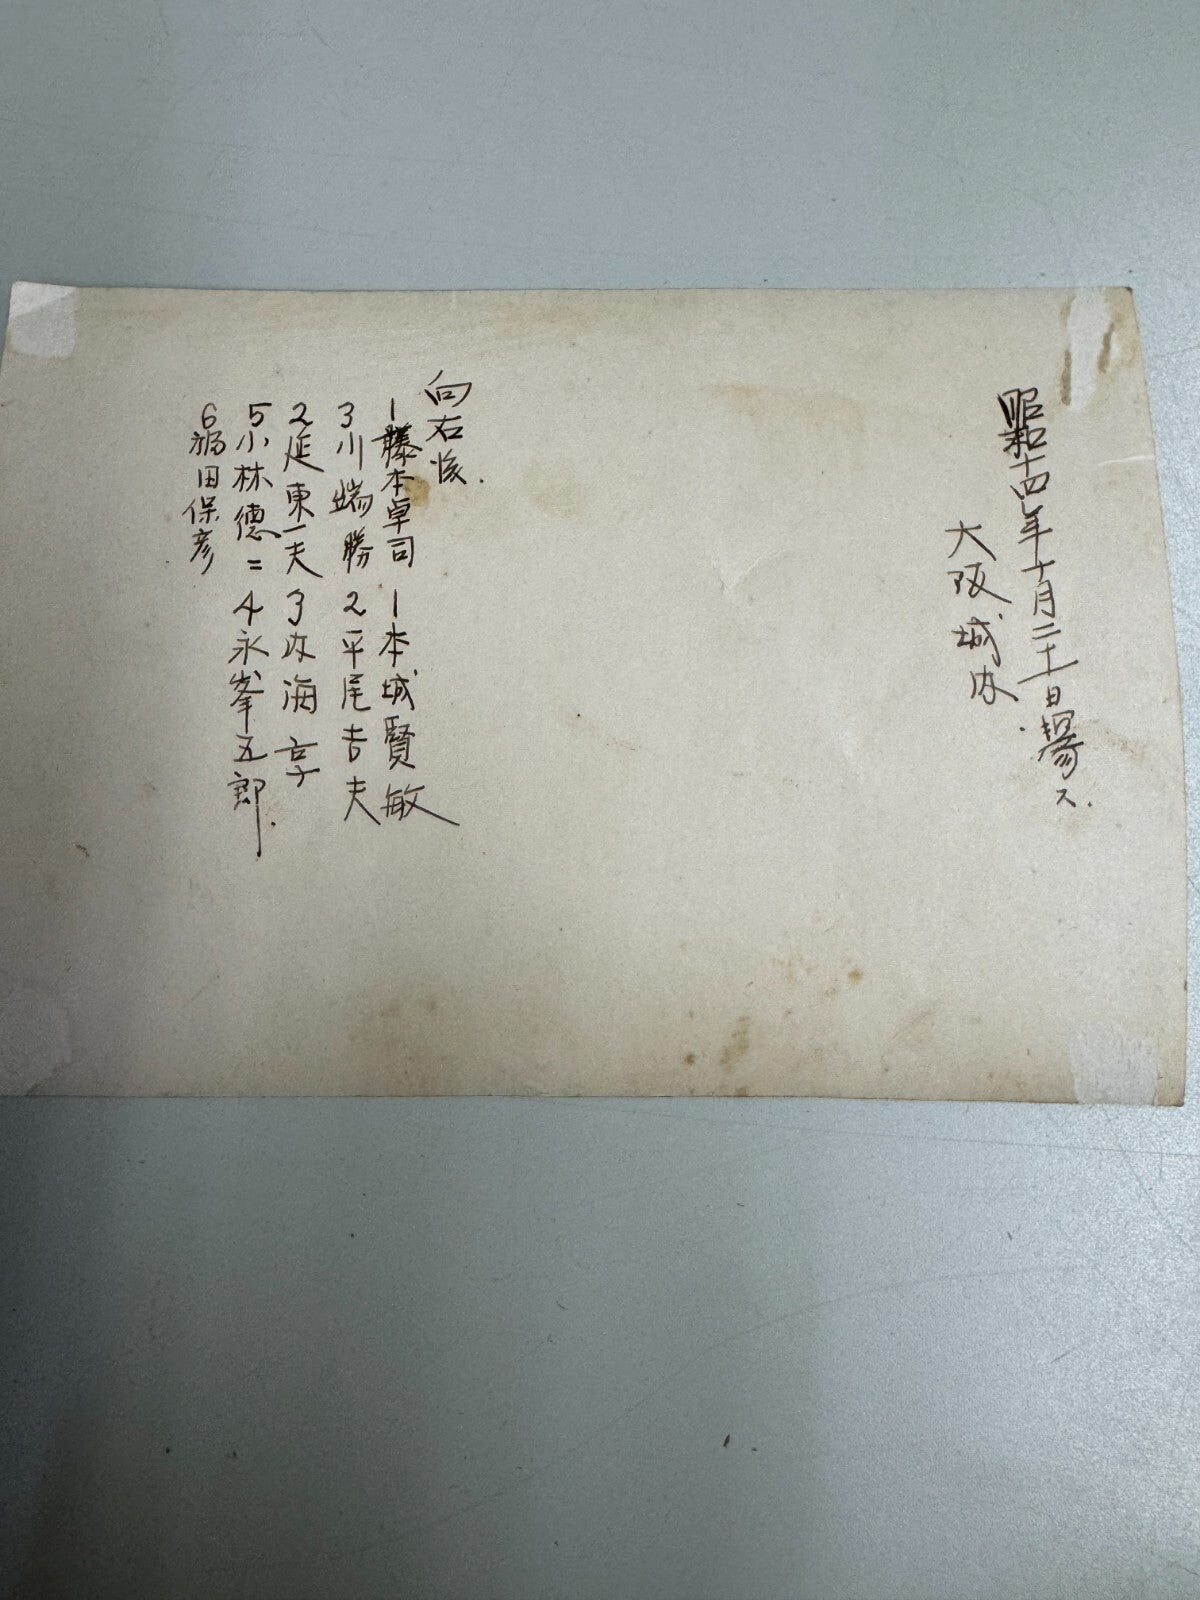 昭和十四年十月二十一日撮ス.
大阪城内.
向右後.
1藤本卓司 1本城賢敏
3川端勝 2平尾吉夫
2延東一夫 3内海享
5小林德二 4永峯五郎.
6福田保彦